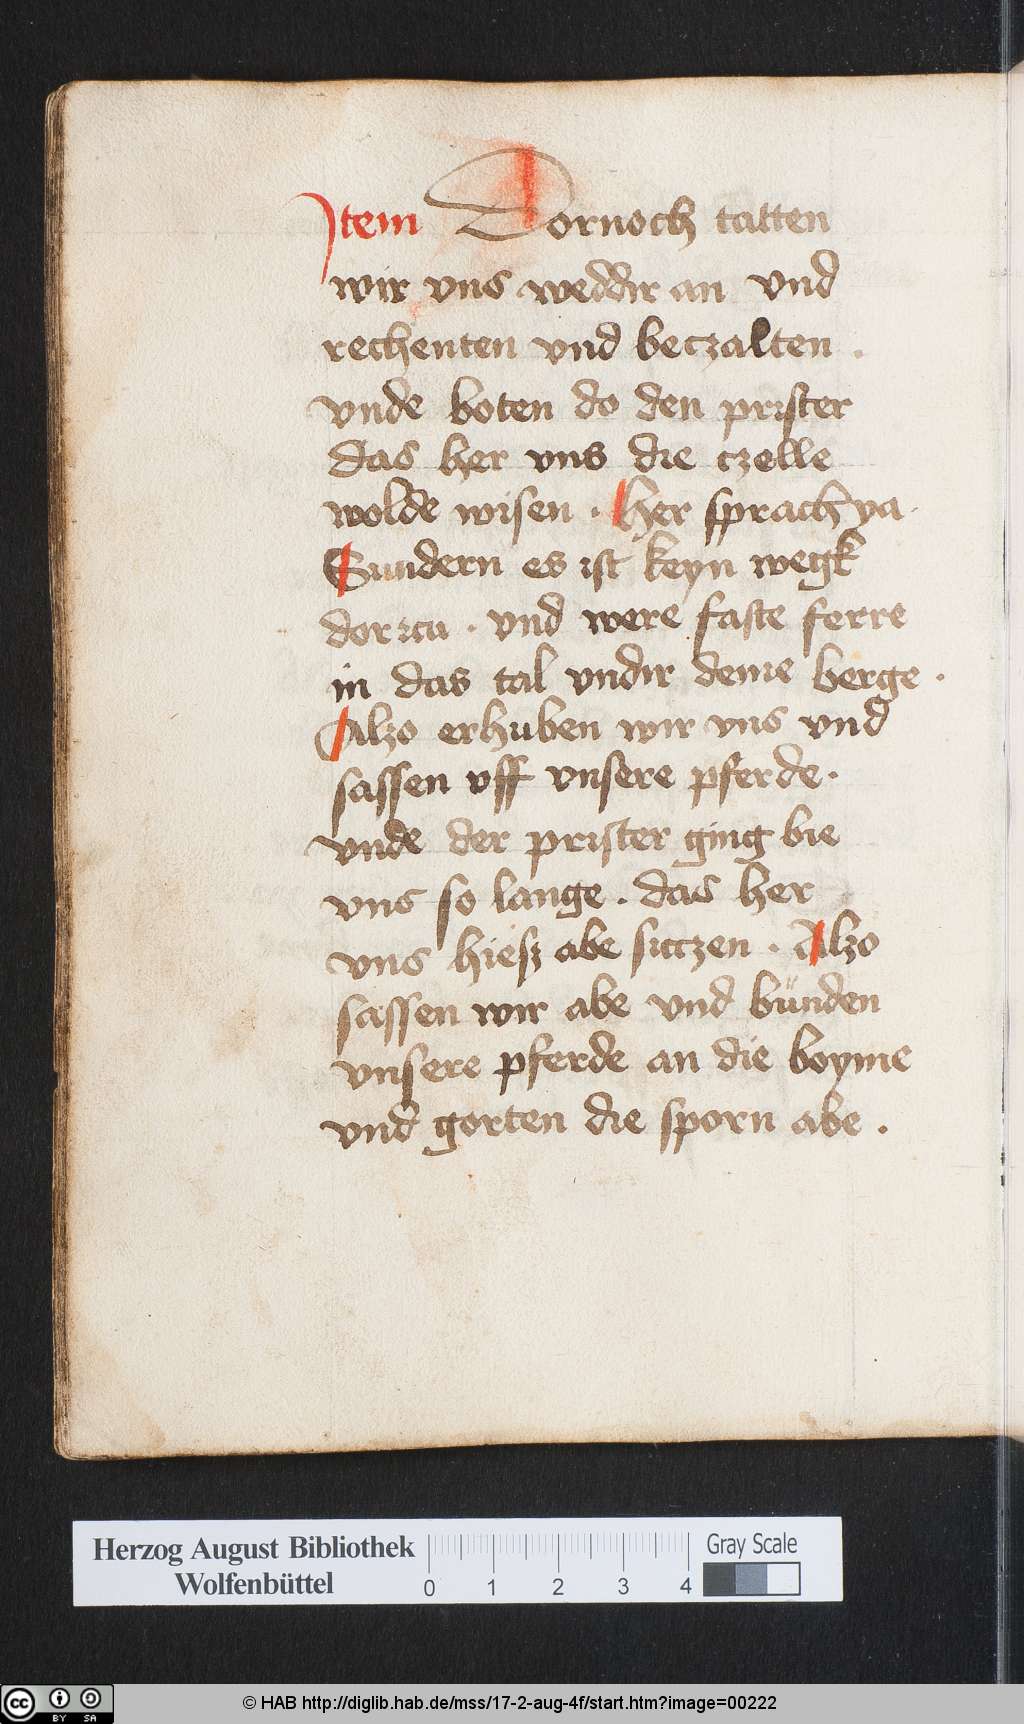 Item Dornoch tatten
wir vns weddir an vnd
rechenten vnd beczalten .
vnde boten do den prister
das her vns die czelle
wolde wisen . her sprach ya .
Sundern es ist keyn wegk
dorczu . vnd were faste ferre
in das tal vndir deme berge .
Alzo erhuben wir vns vnd
sassen vff vnsere pferde .
vnde der prister ging bie
vns so lange . das her
vns hiesz abe sitczen . Alzo
sassen wir abe vnd bünden
vnsere pferde an die boyme
vnd gorten die sporn abe .
Herzog August Bibliothek
Wolfenbüttel
0 1 2 3 4
Gray Scale
cc BY SA
© HAB http://diglib.hab.de/mss/17-2-aug-4f/start.htm?image=00222